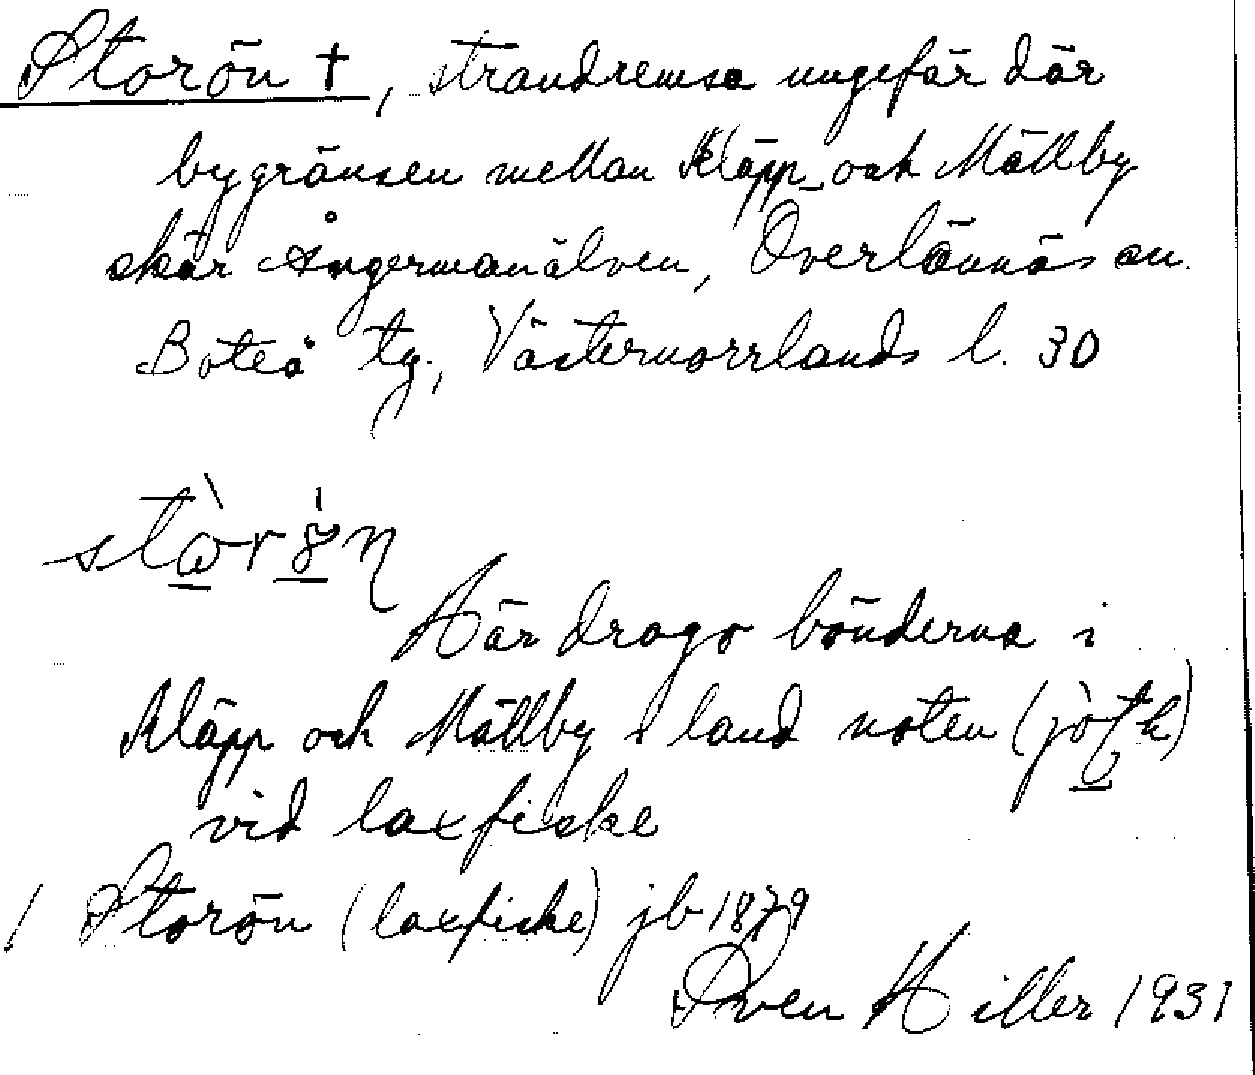 Storön †, strandremsa ungefär där
bygränsen mellan Kläpp och Mällby
skär Ångermanälven, Överlännäs sn.
Boteå tg., Västernorrlands l. 30
Här drogo bönderna i
Kläpp och Mällby i land noten
vid laxfiske
/ Storön (laxfiske) jb 1879
Sven Hiller 1931